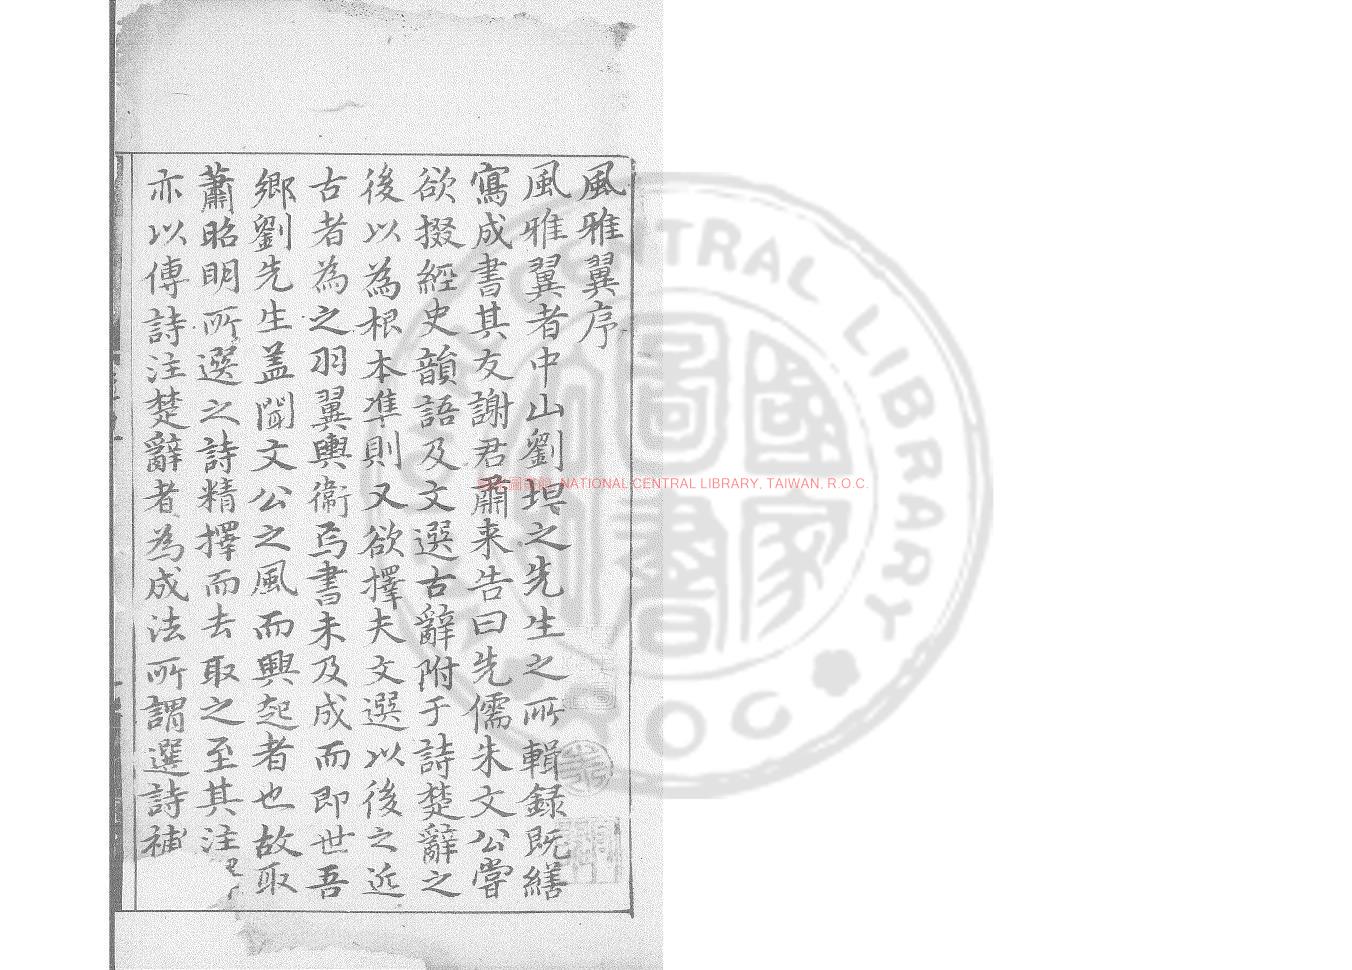 風雅翼序
風雅翼者中山劉坦之先生之所輯録既繕
寫成書其友謝君肅来告曰先儒朱文公嘗
欲掇經史韻語及文選古辭附于詩楚辭之
後以為根本準則又欲擇夫文選以後之近
古者為之羽翼輿衞焉書未及成而即世吾
鄉劉先生盖聞文公之風而興起者也故取
蕭昭明所選之詩精擇而去取之至其注
亦以傳詩注楚辭者為成法所謂選詩補
NATIONAL CENTRAL LIBRARY, TAIWAN, R.O.C.
CENTRAL LIBRARY
ROC
國家圖書